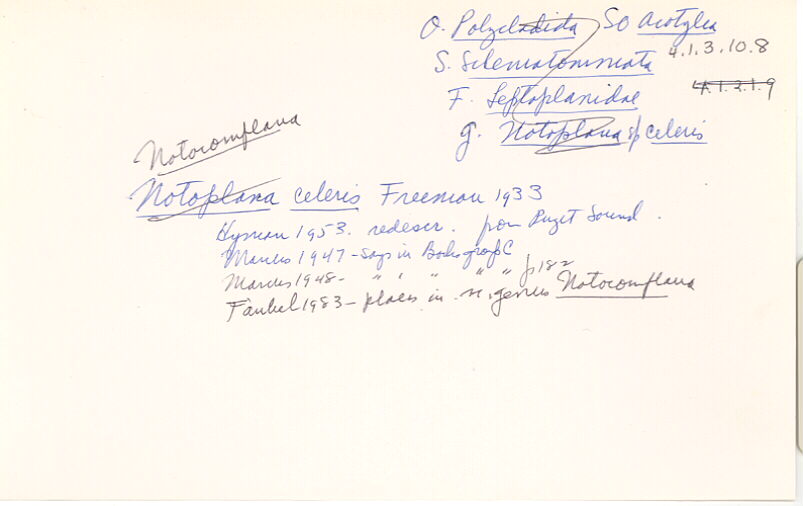 O. Polycladida SO Acotylea
4.1.3.10.8
S. Schematommata
4.1.2.1.9
F. Leptoplanidae
g. Notoplana sp celeris
Notocomplana
Notoplana celeris Freeman 1933
Hyman 1953. redescr. from Puget Sound.
Marcus 1947 - says in Bocks group C
Marcus 1948 - " " " " " p 182
Faubel 1983 - places in n. genus Notocomplana